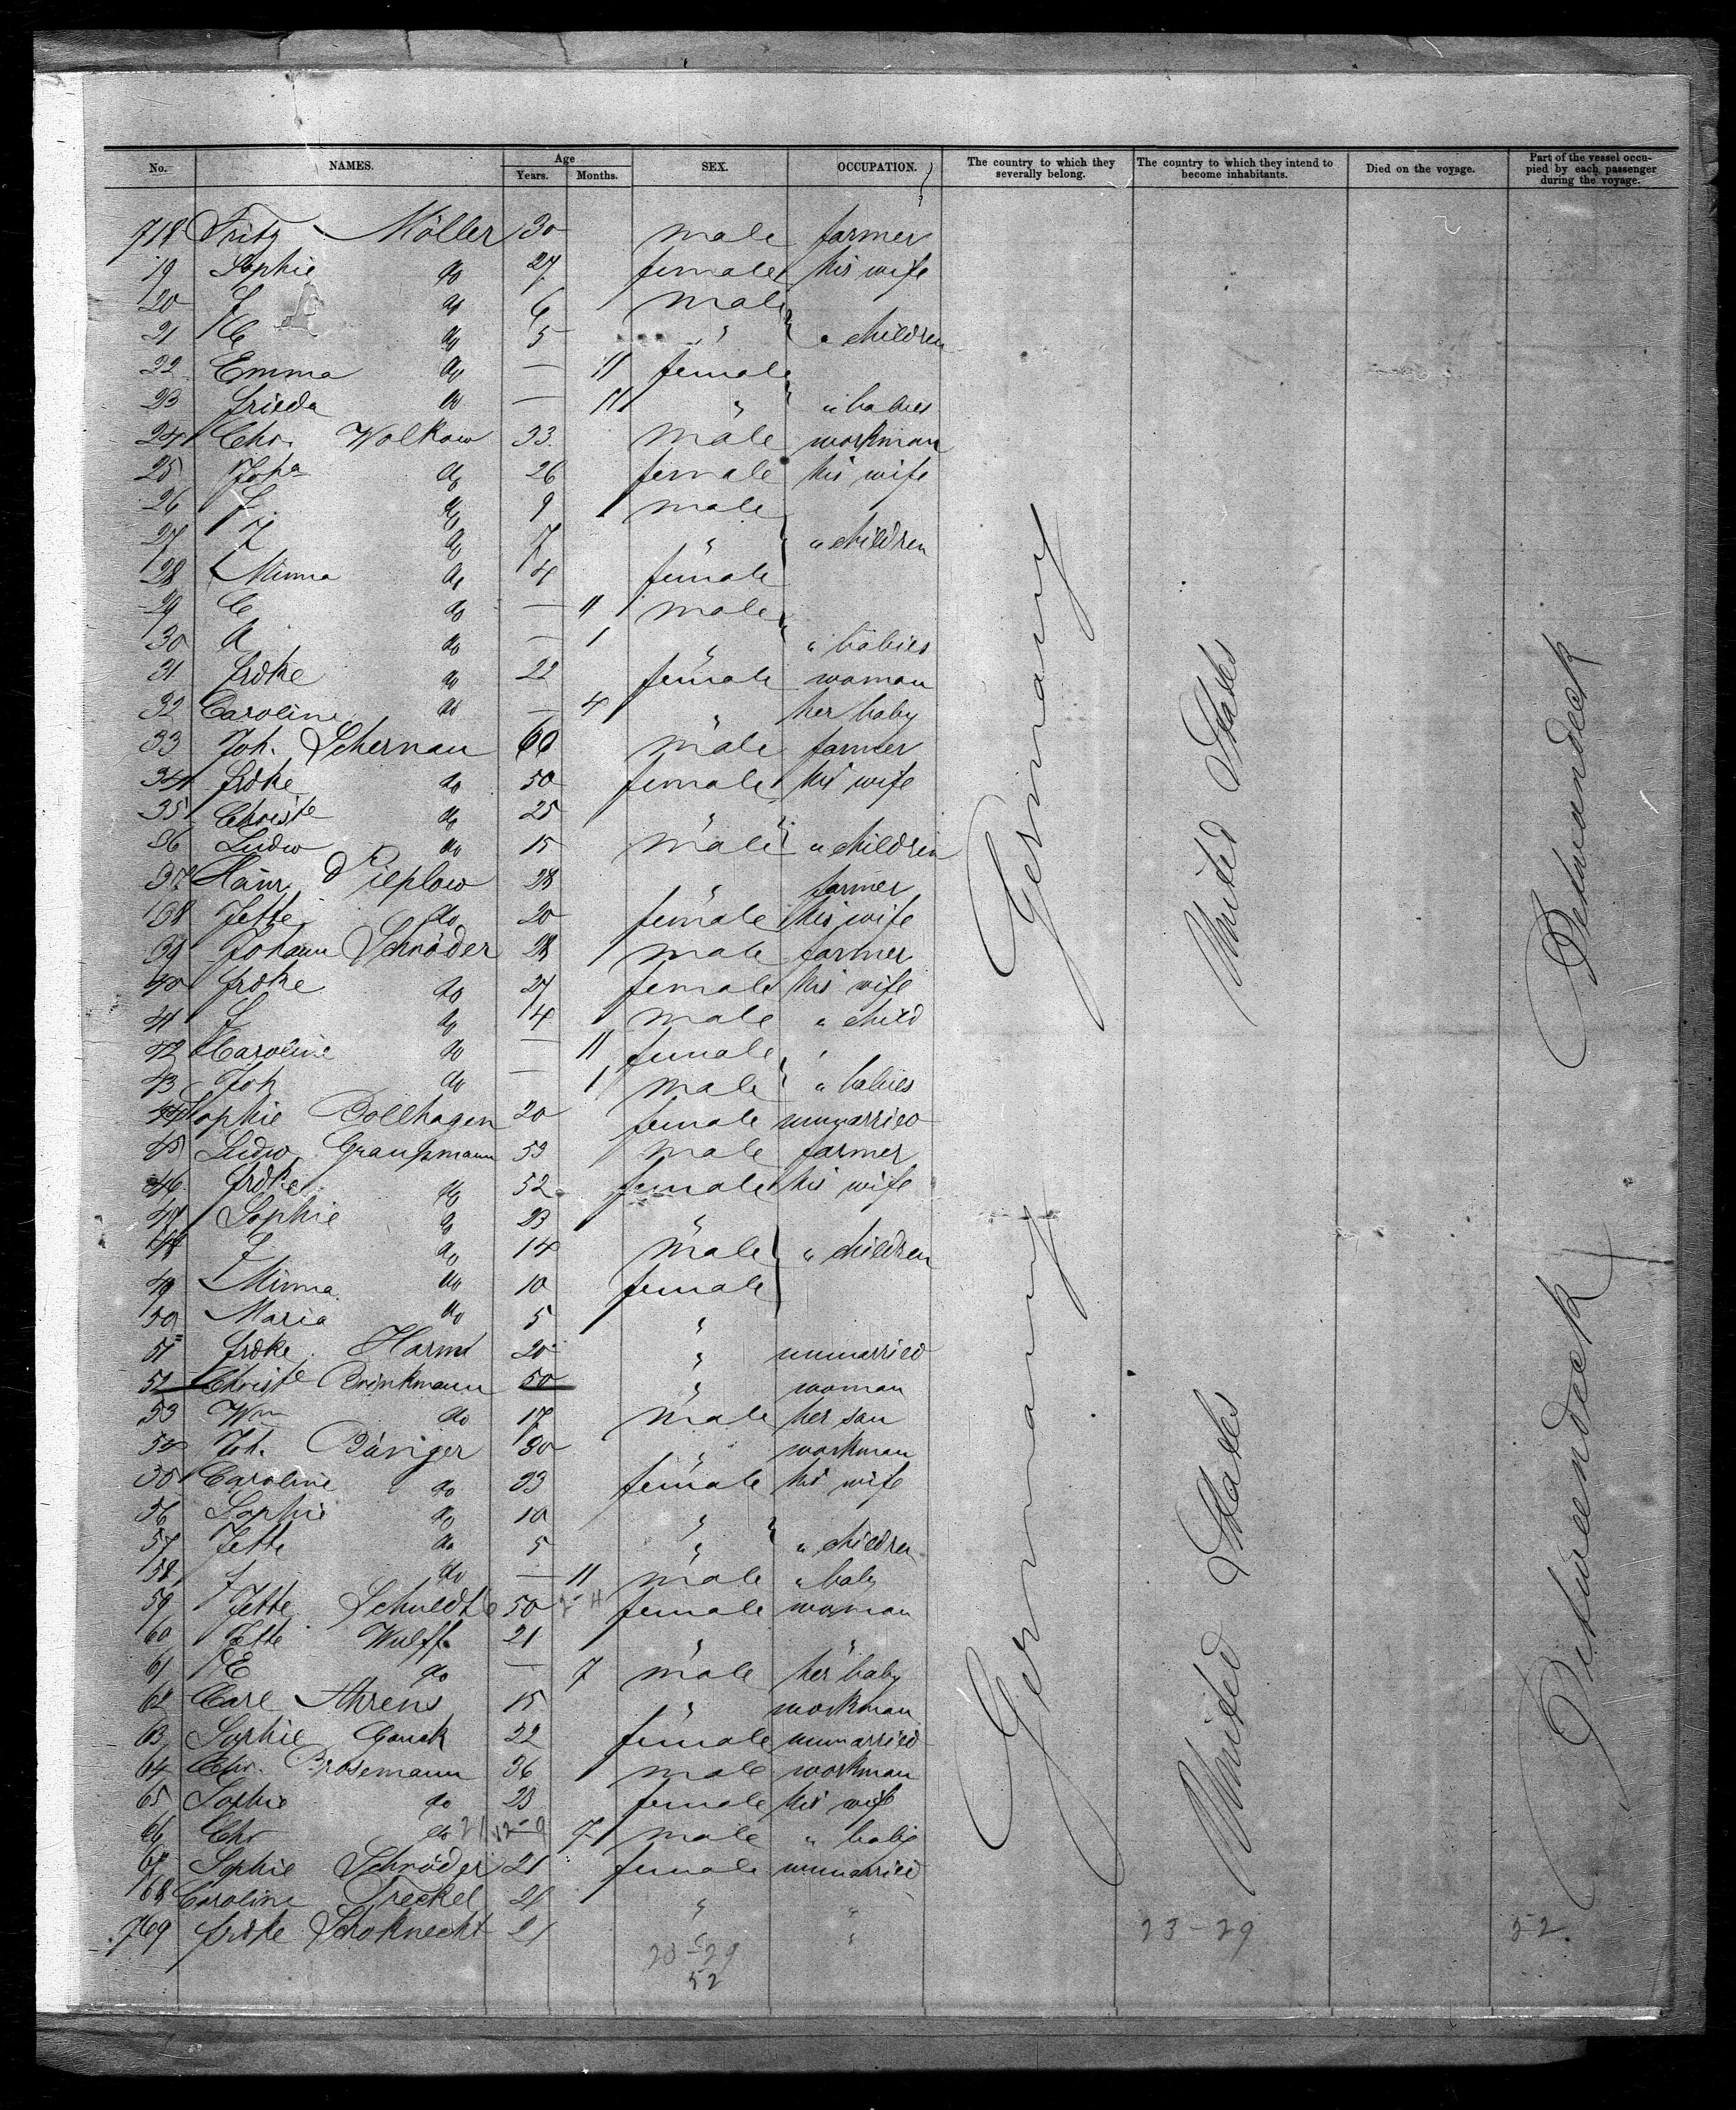 No. NAMES. Age Years. Months. SEX. OCCUPATION. The country to which they severally belong. The country to which they intend to become inhabitants. Died on the voyage. Part of the vessel occupied by each passenger during the voyage.
718 Fritz Möller 30 male farmer
19 Sophie do 27 female his wife
20 F do 6 male
21 C do 5 " " children
22 Emma do — 11 female
23 Frieda do — 11 " " babies
24 Chr. Wolkow 33 male workman
25 Joha do 26 female his wife
26 do 9 male
27 do 7 " " children
28 Minna do 4 female
29 C do — 11 male
30 A do — 1 " " babies
31 Frdke do 22 female woman
32 Caroline do — 4 " her baby
33 Joh. Schernau 60 male farmer
34 Frdke do 50 female his wife
35 Christe do 25 "
36 Ludw do 15 male " children
37 Heinr. Pieplow 28 " farmer
38 Jette do 20 female his wife
39 Johann Schröder 28 male farmer
40 Frdke do 27 female his wife
41 F do 4 male " child
42 Caroline do — 11 female "
43 Joh do — 1 male " babies
44 Sophie Bollhagen 20 female unmarried
45 Ludw Graupmann 53 male farmer
46 Frdke do 52 female his wife
47 Sophie do 23 "
48 F do 14 male " children
49 Minna do 10 female
50 Maria do 5 "
51 Frdke Harms 20 " unmarried
52 Christe Brinkmann 50 " woman
53 Wm do 17 male her son
54 Joh. Büniger 30 " workman
55 Caroline do 33 female his wife
56 Sophie do 10 "
57 Jette do 5 " " children
58 F do — 11 male " baby
59 Jette Schuldt 50 female woman
60 Jette Wulff 21 " "
61 E do — 7 male her baby
62 Carl Ahrens 15 " workman
63 Sophie Gauck 22 female unmarried
64 Chr. Brosemann 36 male workman
65 Sophie do 23 female his wife
66 Chr do 7 male " baby
67 Sophie Schröder 21 female unmarried
68 Caroline Treckel 21 " "
769 Frdke Schoknecht 21 " "
Germany United States Betweendeck
Germany United States Betweendeck
23-29
52
23-29
52.